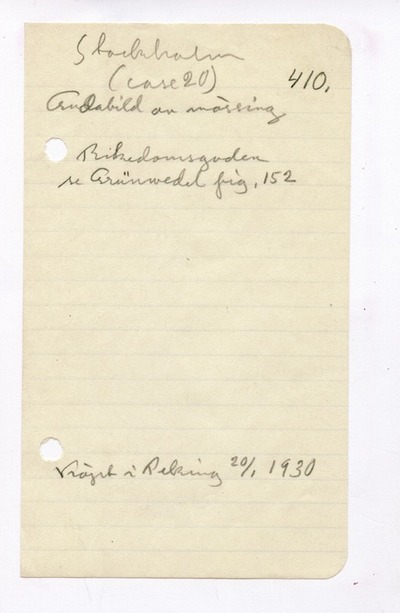 Stockholm
(case 20) 410.
Gudabild av mässing
Rikedomsguden
se Grünwedel fig. 152
Köpt i Peking 20/1 1930